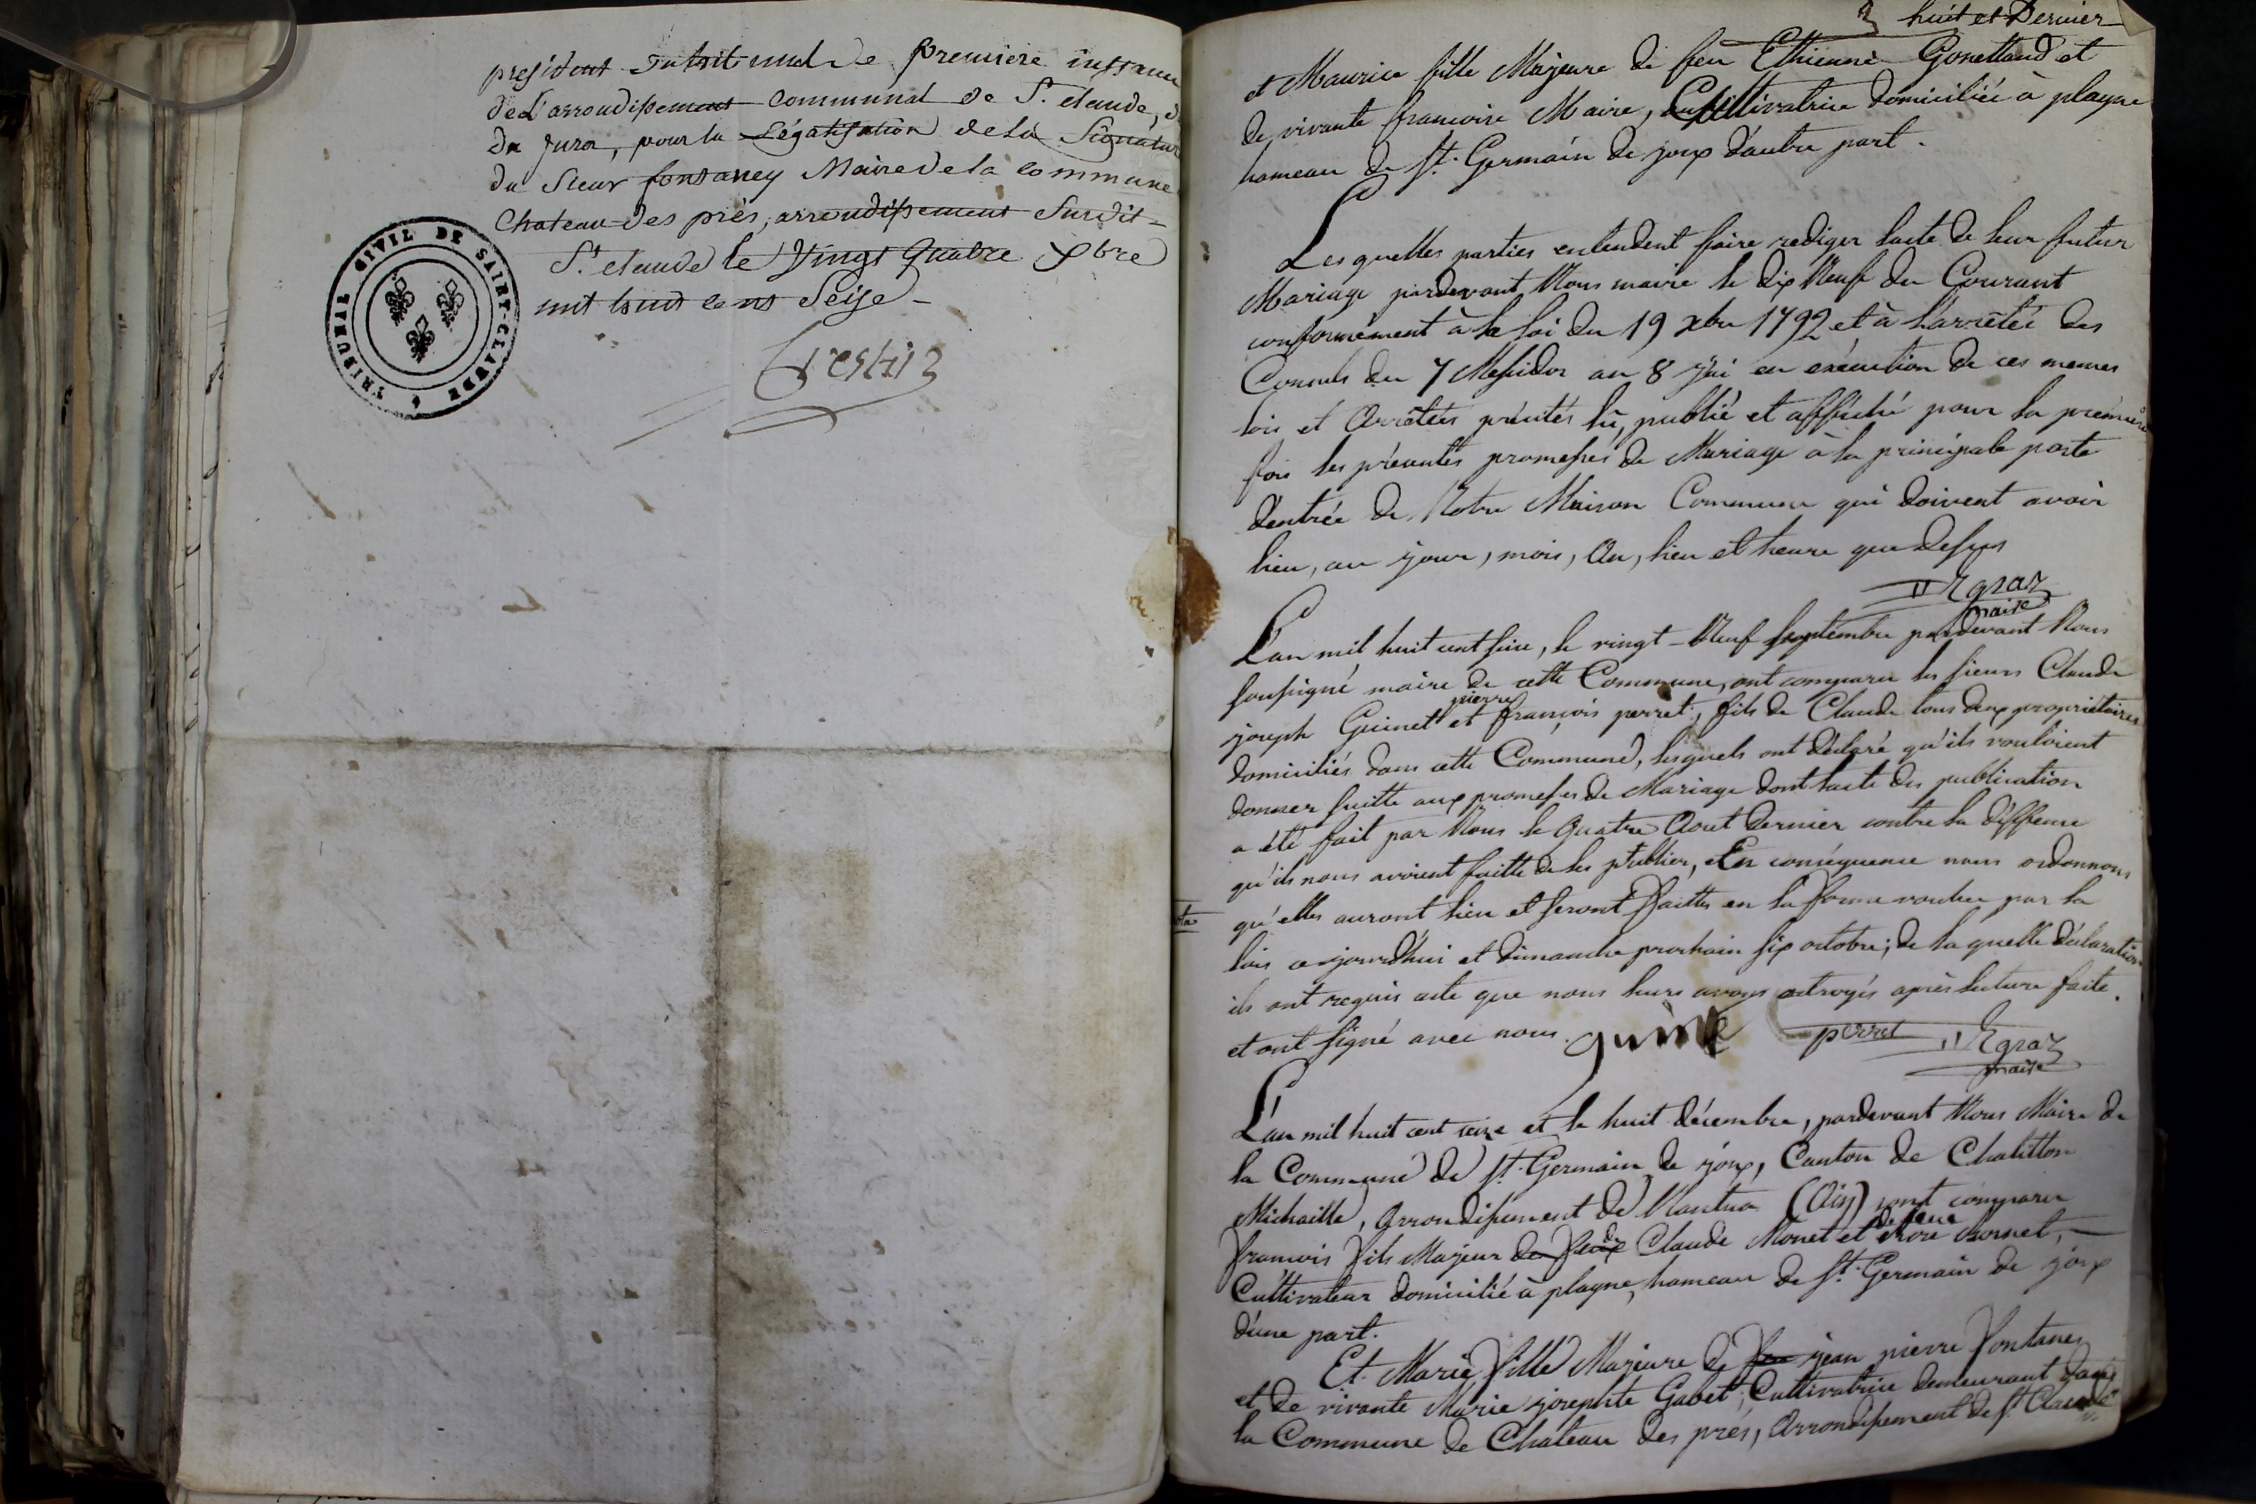 president du tribunal de première instance
de L'arrondissement communal de St. claude, d
du Jura, pour la Légalisation de la Signatur
du Sieur fontaney Maire de la commune
Chateau-des prés, arrondissement Susdit -
St. claude le Vingt quatre xbre
mil huit cent Seise -
TRIBUNAL CIVIL DE SAINT-CLAUDE
huit et Dernier
et Maurice fille Majeure de feu Ethienne Gonettand et
de vivante francoise Maire, Cultivatrice domiciliée à plagne
hameau de St. Germain de joux d'autre part.
Lesquelles parties entendent faire rediger lacte de leur futur
Mariage pardevant Nous maire le dix Neuf du Courant
conformément à la loi du 19 xbre 1792 et à l'arrêtée des
Consuls du 7 Messidor an 8 j'ai en exécution de ces memes
lois et Arrêtées précités lû, publié et affiché pour la premiere
fois les présentes promesses de Mariage à la principale porte
d'entrée de Notre Maison Commune qui doivent avoir
lieu, au jour, mois, An, lieu et heure que dessus
Egraz
maire
L'an mil huit cent seize, le vingt-Neuf septembre pardevant Nous
soussigné maire de cette Commune, ont comparu les sieurs Claude
joseph Guinet et pierre françois perret, fils de Claude tous deux propriétaires
domiciliés dans cette Commune, lesquels ont déclaré qu'ils vouloient
donner suitte aux promesses de Mariage dont lacte des publication
a été fait par Nous le quatre Aout dernier contre la déffense
qu'ils nous avoient faitte de les publier, En conséquence nous ordonnons
qu'elles auront lieu et seront faittes en la forme voulue par la
lois cejourd'hui et dimanche prochain six octobre; de laquelle déclaration
ils ont requis acte que nous leurs avons octroyés après lecture faite.
et ont signé avec nous. guinet perret Egraz
maire
L'an mil huit cent seize et le huit décembre, pardevant Nous Maire de
la Commune de St. Germain de joux, Canton de Chatillon
Michaille, Arrondissement de Nantua (Ain) sont comparu
francois fils Majeur de Claude Monet et de feue Bornet,
Cultivateur domicilié à plagne, hameau de St. Germain de joux
d'une part.
Et Marie fille Majeure de feu jean pierre fontaney
et de vivante Marie josephte Gabet, Cultivatrice demeurant dans
la Commune de Chateau des prés, Arrondissement de St. Claude